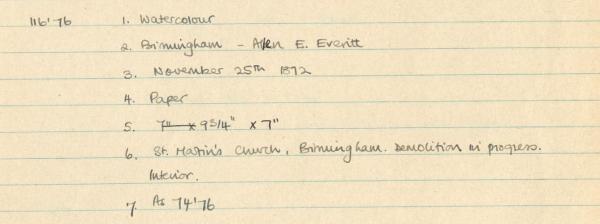 116'76 1. Watercolour
2. Birmingham - Allen E. Everitt
3. November 25th 1872
4. Paper
5. 7" x 9 3/4" x 7"
6. St. Martin's Church, Birmingham. Demolition in progress.
Interior.
7. As 74'76